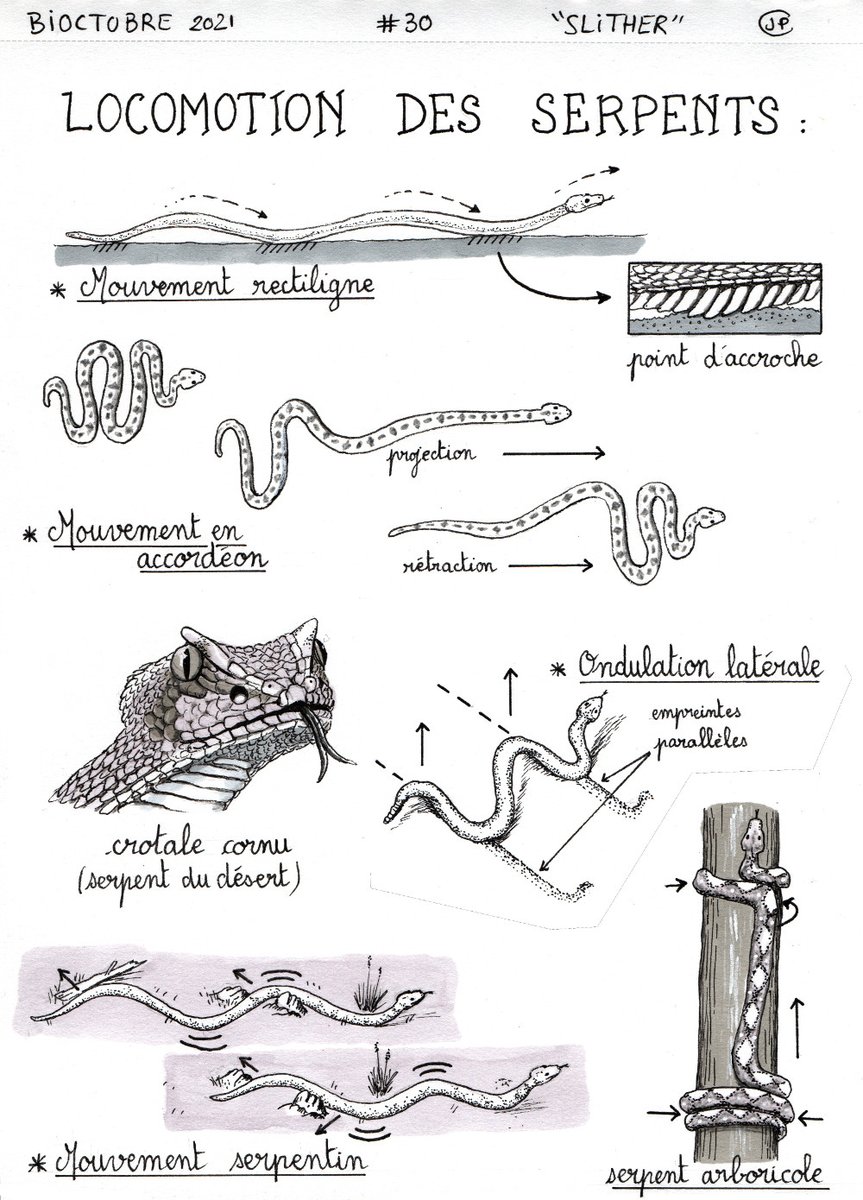 BIOCTOBRE 2021 #30 "SLITHER" JP
LOCOMOTION DES SERPENTS :
* Mouvement rectiligne
point d'accroche
projection
* Mouvement en
accordéon
rétraction
* Ondulation latérale
empreintes
parallèles
crotale cornu
(serpent du désert)
* Mouvement serpentin
serpent arboricole